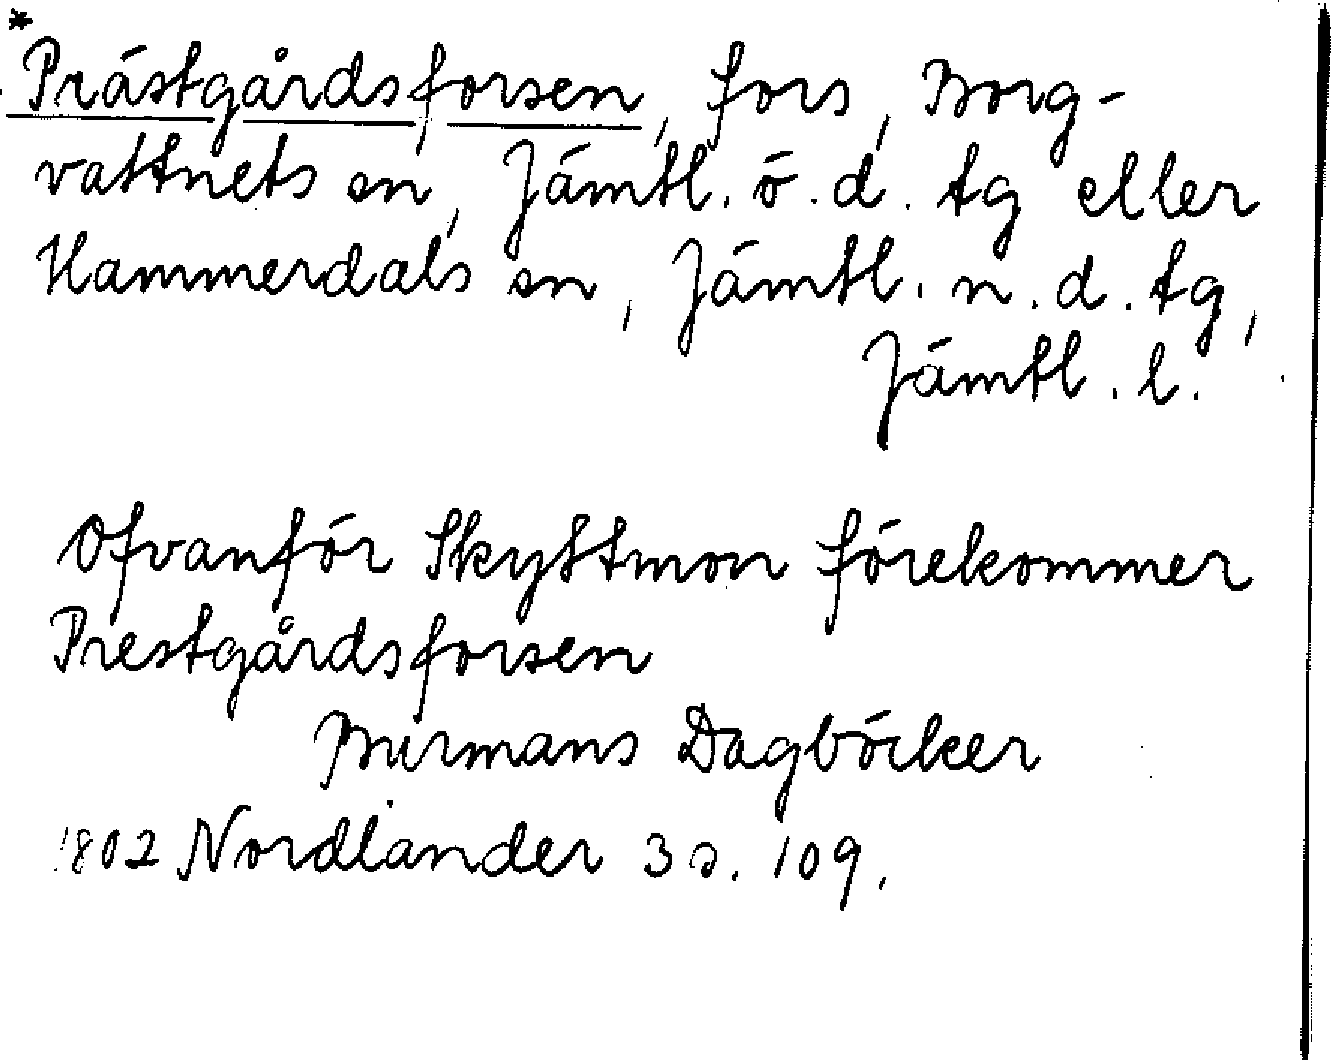 *
Prästgårdsforsen, fors, Borg-
vattnets sn, Jämtl. ö. d. tg eller
Hammerdals sn, Jämtl. n. d. tg,
Jämtl. l.
Ofvanför Skyttmon förekommer
Prestgårdsforsen
Burmans Dagböcker
1802 Nordlander 3 s. 109.